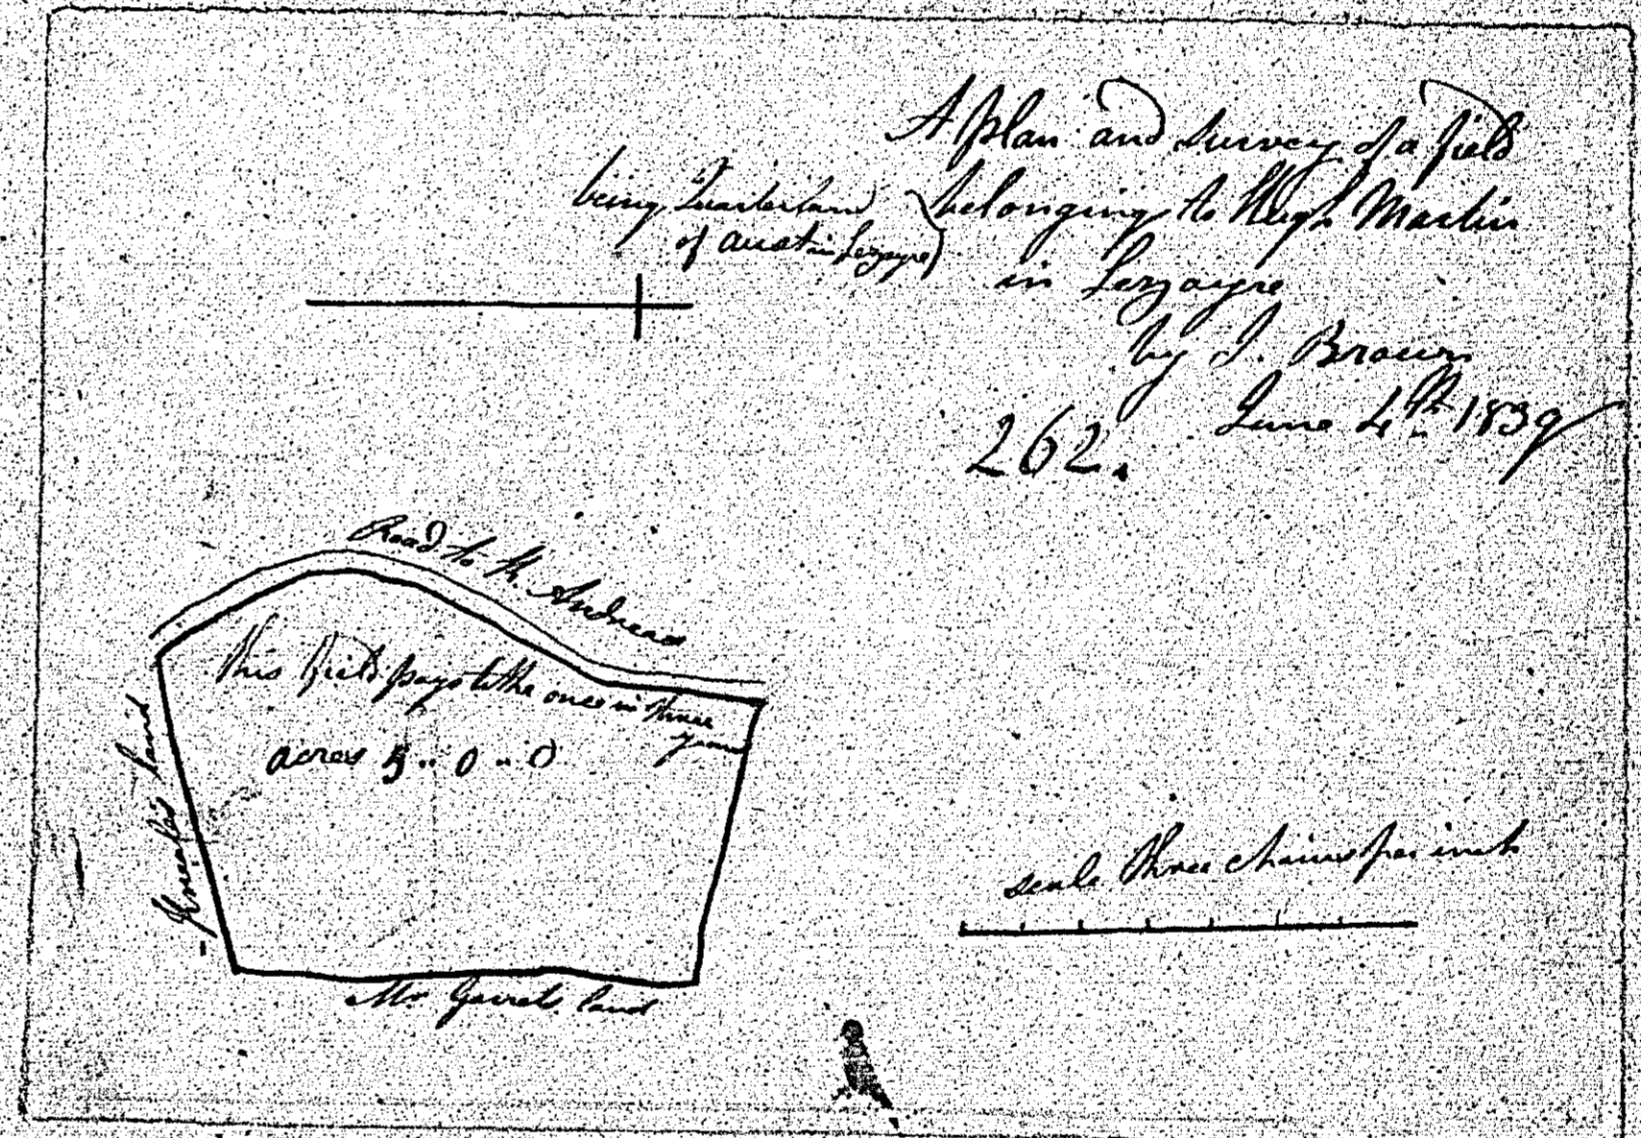 A plan and survey of a field
belonging to Hugh Martin
in Lezayre
by J. Brown
June 4th 1839
being Quarterland
of aust in Lezayre
262.
Road to K. Andreas
This field pays tithe once in three
years
acres 5..0..0
Kneale's land
Mr Garrets land
scale three chains per inch